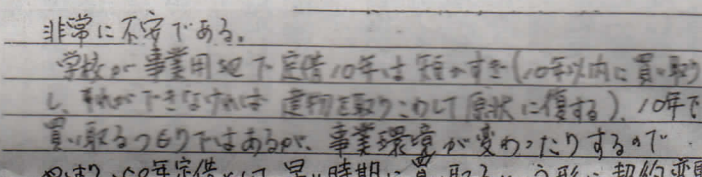 非常に不安である。
学校が事業用地で定借10年は短かすぎ(10年以内に買い取り
し、それができなければ建物を取りこわして原状に復する)、10年で
買い取るつもりではあるが、事業環境が変わったりするので
やはり、50年定借にして早い時期に買取る 契約変更